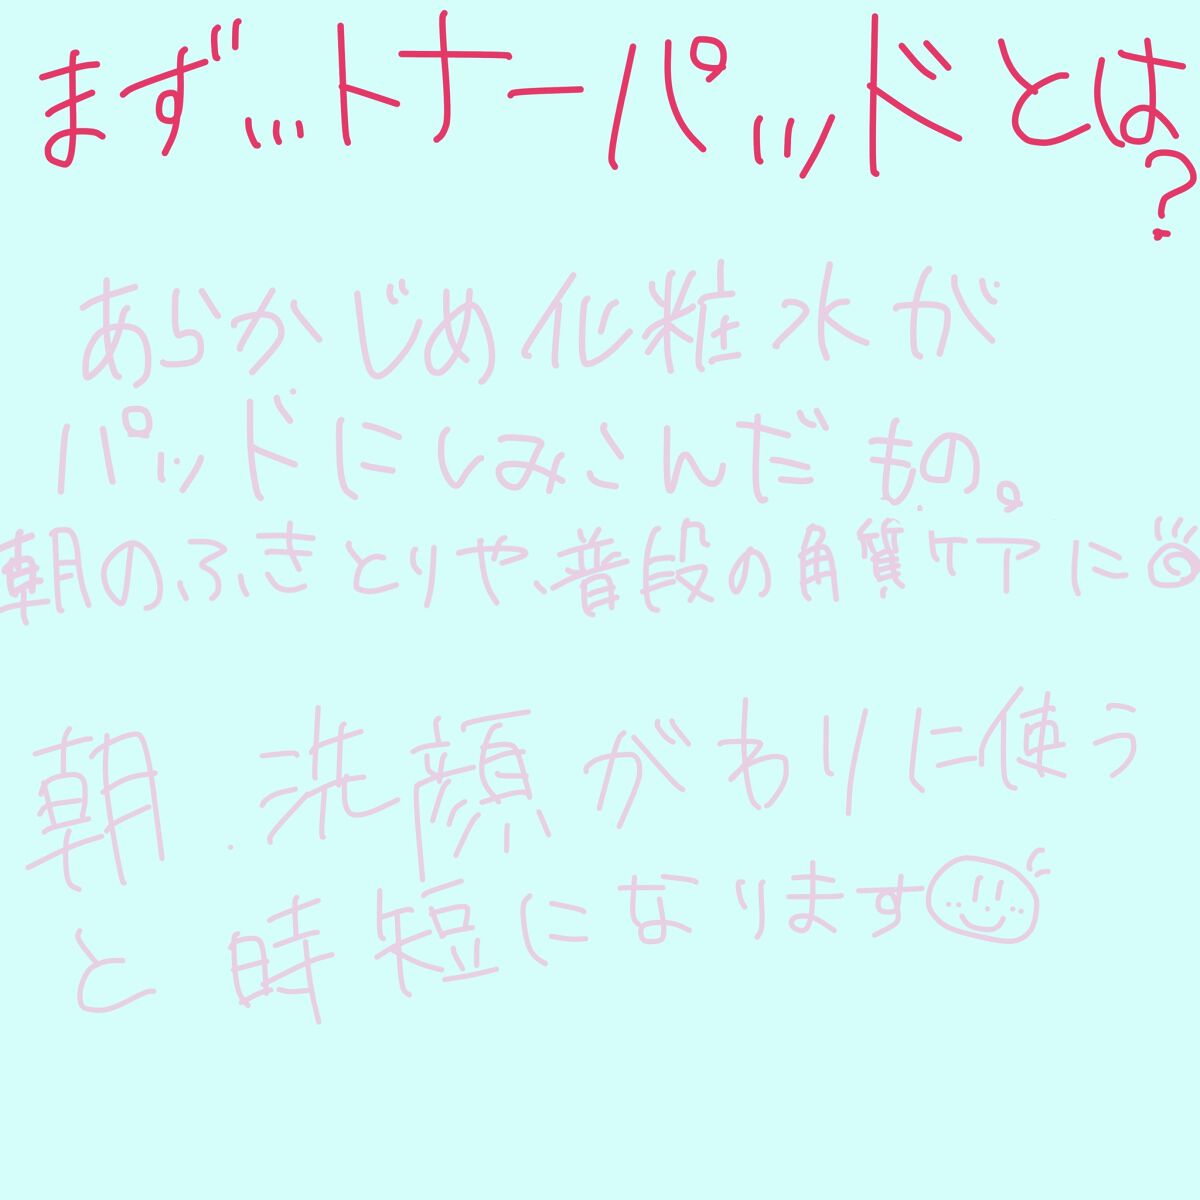 まず…トナーパッドとは?
あらかじめ化粧水が
パッドにしみこんだもの。
朝のふきとりや、普段の角質ケアに◎
朝、洗顔がわりに使う
と時短になります